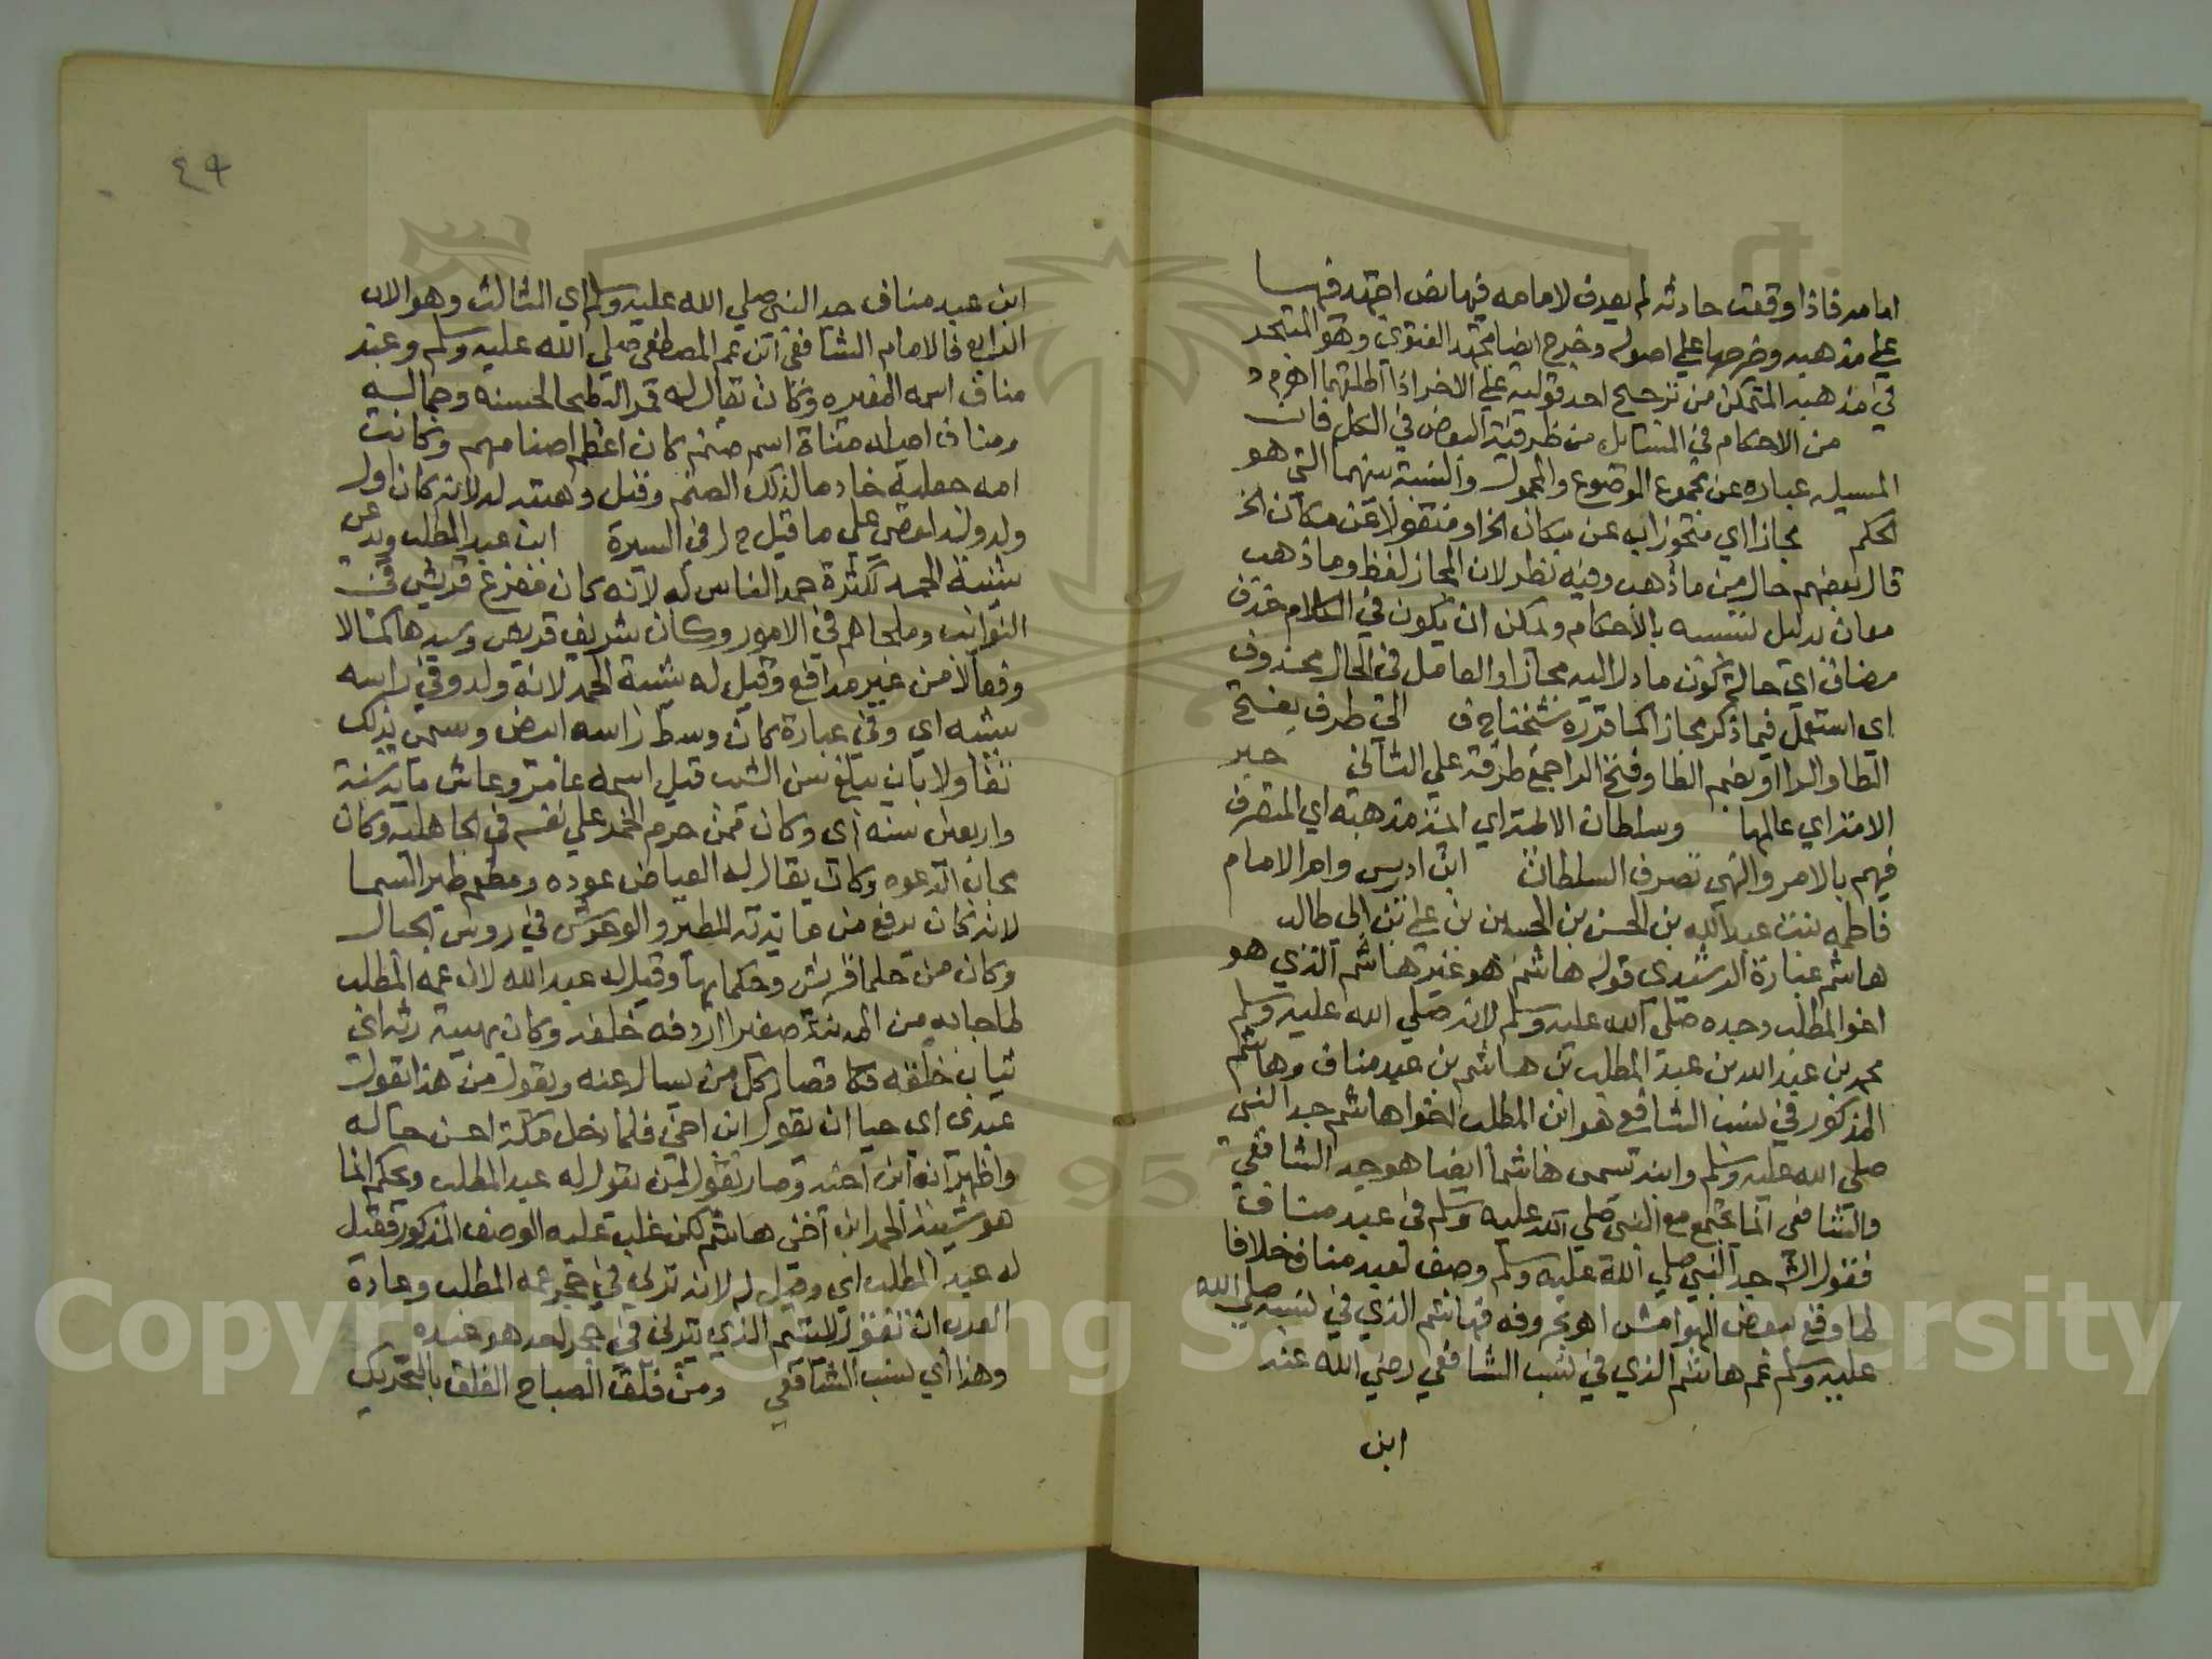 امامه فاذا وقعت حادثه لم يعرف لامامه فيها نص اجتهد فيها
على مذهبه وخرجها على اصوله وخرج ايضا مجتهد الفتوى وهو المتبحر
في مذهبه المتمكن من ترجيح احد قوليه على الاخر اذا اطلقهما اهم ر
من الاحكام في المسايل من ظرفية البعض في الكل فان
المسيله عباره عن مجموع الموضوع والمحمول والنسبة بينهما التي هو
الحكم مجازا اي متجوزا به عن مكان الخ او منقولا عن مكان الخ
قال بعضهم حال من ما ذهب وفيه نظر لان المجاز لفظ وما ذهب
معان بدليل تبيينه بالاحكام ويمكن ان يكون في الكلام حذف
مضاف اي حالة كون مادل اليه مجازا والعامل في الحال محذوف
اي استعمل فيما ذكر مجازا كما قدره شخنا ج ف التي طرف بفتح
الطا والرا او بضم الطا وفتح الرا جمع طرفة علي الثاني حبر
الامة اي عالمها وسلطان الايمة اي ايمة مذهبه اي المتصرف
فيهم بالامر والنهي تصرف السلطان ابن ادريس وام الامام
فاطمه بنت عبد الله بن الحسن بن الحسين بن علي بن ابي طالب
هاشم عبارة الرشيدي قوله هاشم هو غير هاشم الذي هو
اخو المطلب وجده صلي الله عليه وسلم لانه صلي الله عليه وسلم
محمد بن عبد الله بن عبد المطلب بن هاشم بن عبد مناف وهاشم
المذكور في نسب الشافعي هو ابن المطلب اخو هاشم جد النبي
صلي الله عليه وسلم وابنه تسمى هاشما ايضا هو جد الشافعي
والشافعي انما يجتمع مع النبي صلي الله عليه وسلم في عبد مناف
فقول الش جد النبي صلي الله عليه وسلم وصف لعبد مناف خلافا
لما وقع لبعض الهوامش اهو بحروفه فهاشم الذي في نسبه صلي الله
عليه وسلم عم هاشم الذي في نسب الشافعي رضي الله عنه
ابن
٤٩
ابن عبد مناف جد النبي صلي الله عليه وسلم اي الثالث وهو الاب
الرابع فالامام الشافعي ابن عم المصطفي صلي الله عليه وسلم وعبد
مناف اسمه المغيره وكان يقال له قمر البطحا لحسنه وجماله
ومناف اصله مناة اسم صنم كان اعظم اصنامهم وكانت
امه جعلته خادما لذلك الصنم وقيل وهبته له لانه كان اول
ولد ولد لقصي علي ما قيل ح ل في السيرة ابن عبد المطلب ويدعى
شيبة الحمد لكثرة حمد الناس له لانه كان مفزع قريش في
النوائب وملجاهم في الامور وكان شريف قريش وسيدها كمالا
وفعالا من غير مدافع وقيل له شيبة الحمد لانه ولد وفي راسه
شيبه اي وفي عبارة كان وسط راسه ابيض وسمى بذلك
تفاولا بان يبلغ سن الشيب قيل اسمه عامر وعاش ماية سنة
واربعين سنه اي وكان ممن حرم الخمر علي نفسه في الجاهلية وكان
مجاب الدعوه وكان يقال له الفياض لجوده ومطعم طير السما
لانه كان يرفع من مايدته للطير والوحوش في روس الجبال
وكان من حلما قريش وحكمايها وقيل له عبد الله لان عمه المطلب
لما جا به من المدينة صغيرا اردفه خلفه وكان بهيية رثه اي
ثياب خلقه فصار كل من يسال عنه ويقول من هذا يقول
عبدي اي حيا ان يقول ابن اخي فلما دخل مكة احسن حاله
واظهر انه ابن اخيه وصار يقول لمن يقول له عبد المطلب ويحكم انما
هو شيبة الحمد ابن اخي هاشم لكن غلب عليه الوصف المذكور فقيل
له عبد المطلب اي وقيل له لانه تربى في حجر عمه المطلب وعادة
العرب ان تقول لليتيم الذي يتربى في حجر احد هو عبده
وهذا اي نسب الشافعي ومن فلق الصباح الفلق بالتحريك
Copyright © King Saud University